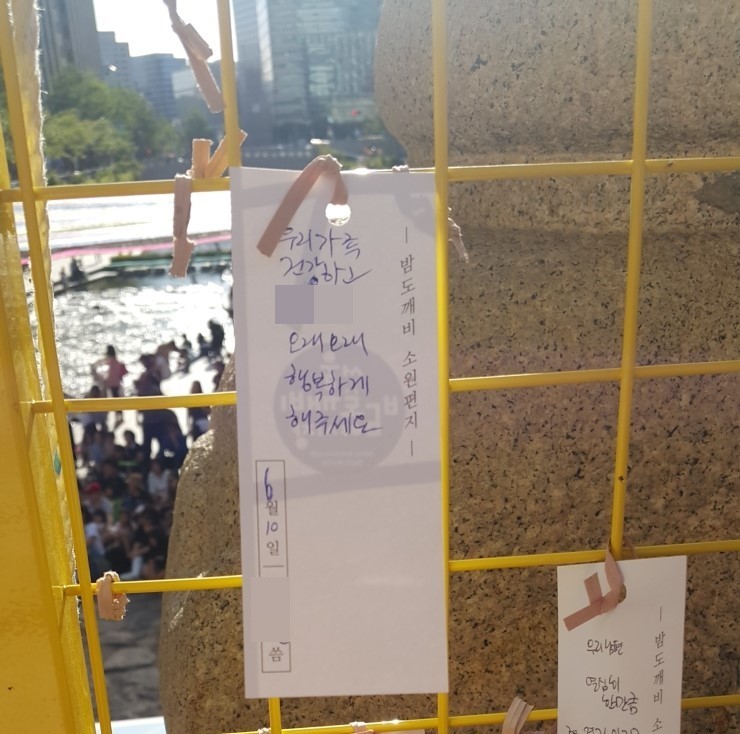 우리가족
건강하고
오래오래
행복하게
해주세요
— 밤도깨비 소원편지 —
6월
10일
씀
우리남편
열심히
한만큼
— 밤도깨비 소